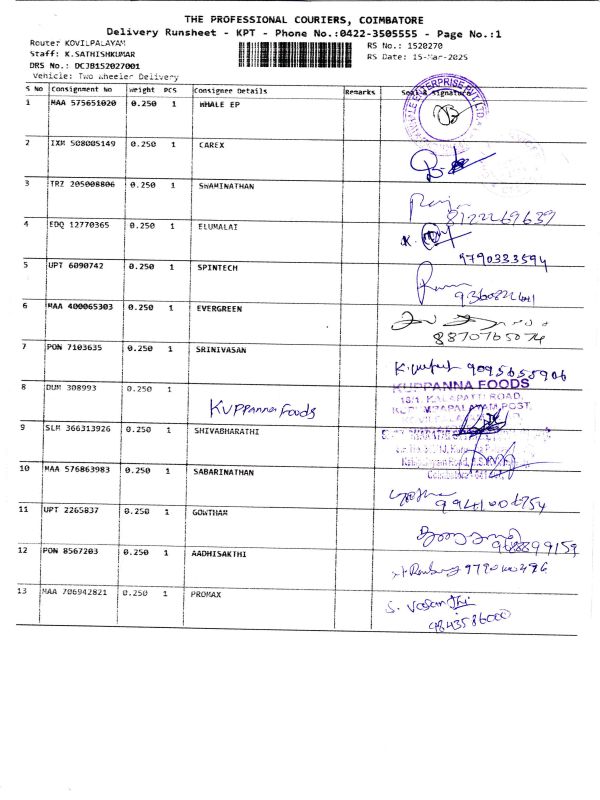 THE PROFESSIONAL COURIERS, COIMBATORE
Delivery Runsheet - KPT - Phone No.:0422-3505555 - Page No.:1
Router KOVILPALAYAM
RS No.: 1520270
Staff: K.SATHISHKUMAR
RS Date: 15-Mar-2025
DRS No.: DCJB152027001
Vehicle: Two Wheeler Delivery
S No Consignment No Weight PCS Consignee Details Remarks Seal & Signature
1 MAA 575651020 0.250 1 WHALE EP
2 IXM 508005149 0.250 1 CAREX
3 TRZ 205008806 0.250 1 SWAMINATHAN
8122269639
4 EDQ 12770365 0.250 1 ELUMALAI
9790333594
5 UPT 6090742 0.250 1 SPINTECH
6 MAA 400065303 0.250 1 EVERGREEN
8870765074
7 PON 7103635 0.250 1 SRINIVASAN
9095655906
8 DUM 308993 0.250 1 Kuppanna Foods
KUPPANNA FOODS
18/1, KALAPATTI ROAD,
9 SLM 366313926 0.250 1 SHIVABHARATHI
10 MAA 576863983 0.250 1 SABARINATHAN
11 UPT 2265837 0.250 1 GOWTHAM
12 PON 8567203 0.250 1 AADHISAKTHI
13 MAA 706942821 0.250 1 PROMAX
S. Vasanthi
9843586000